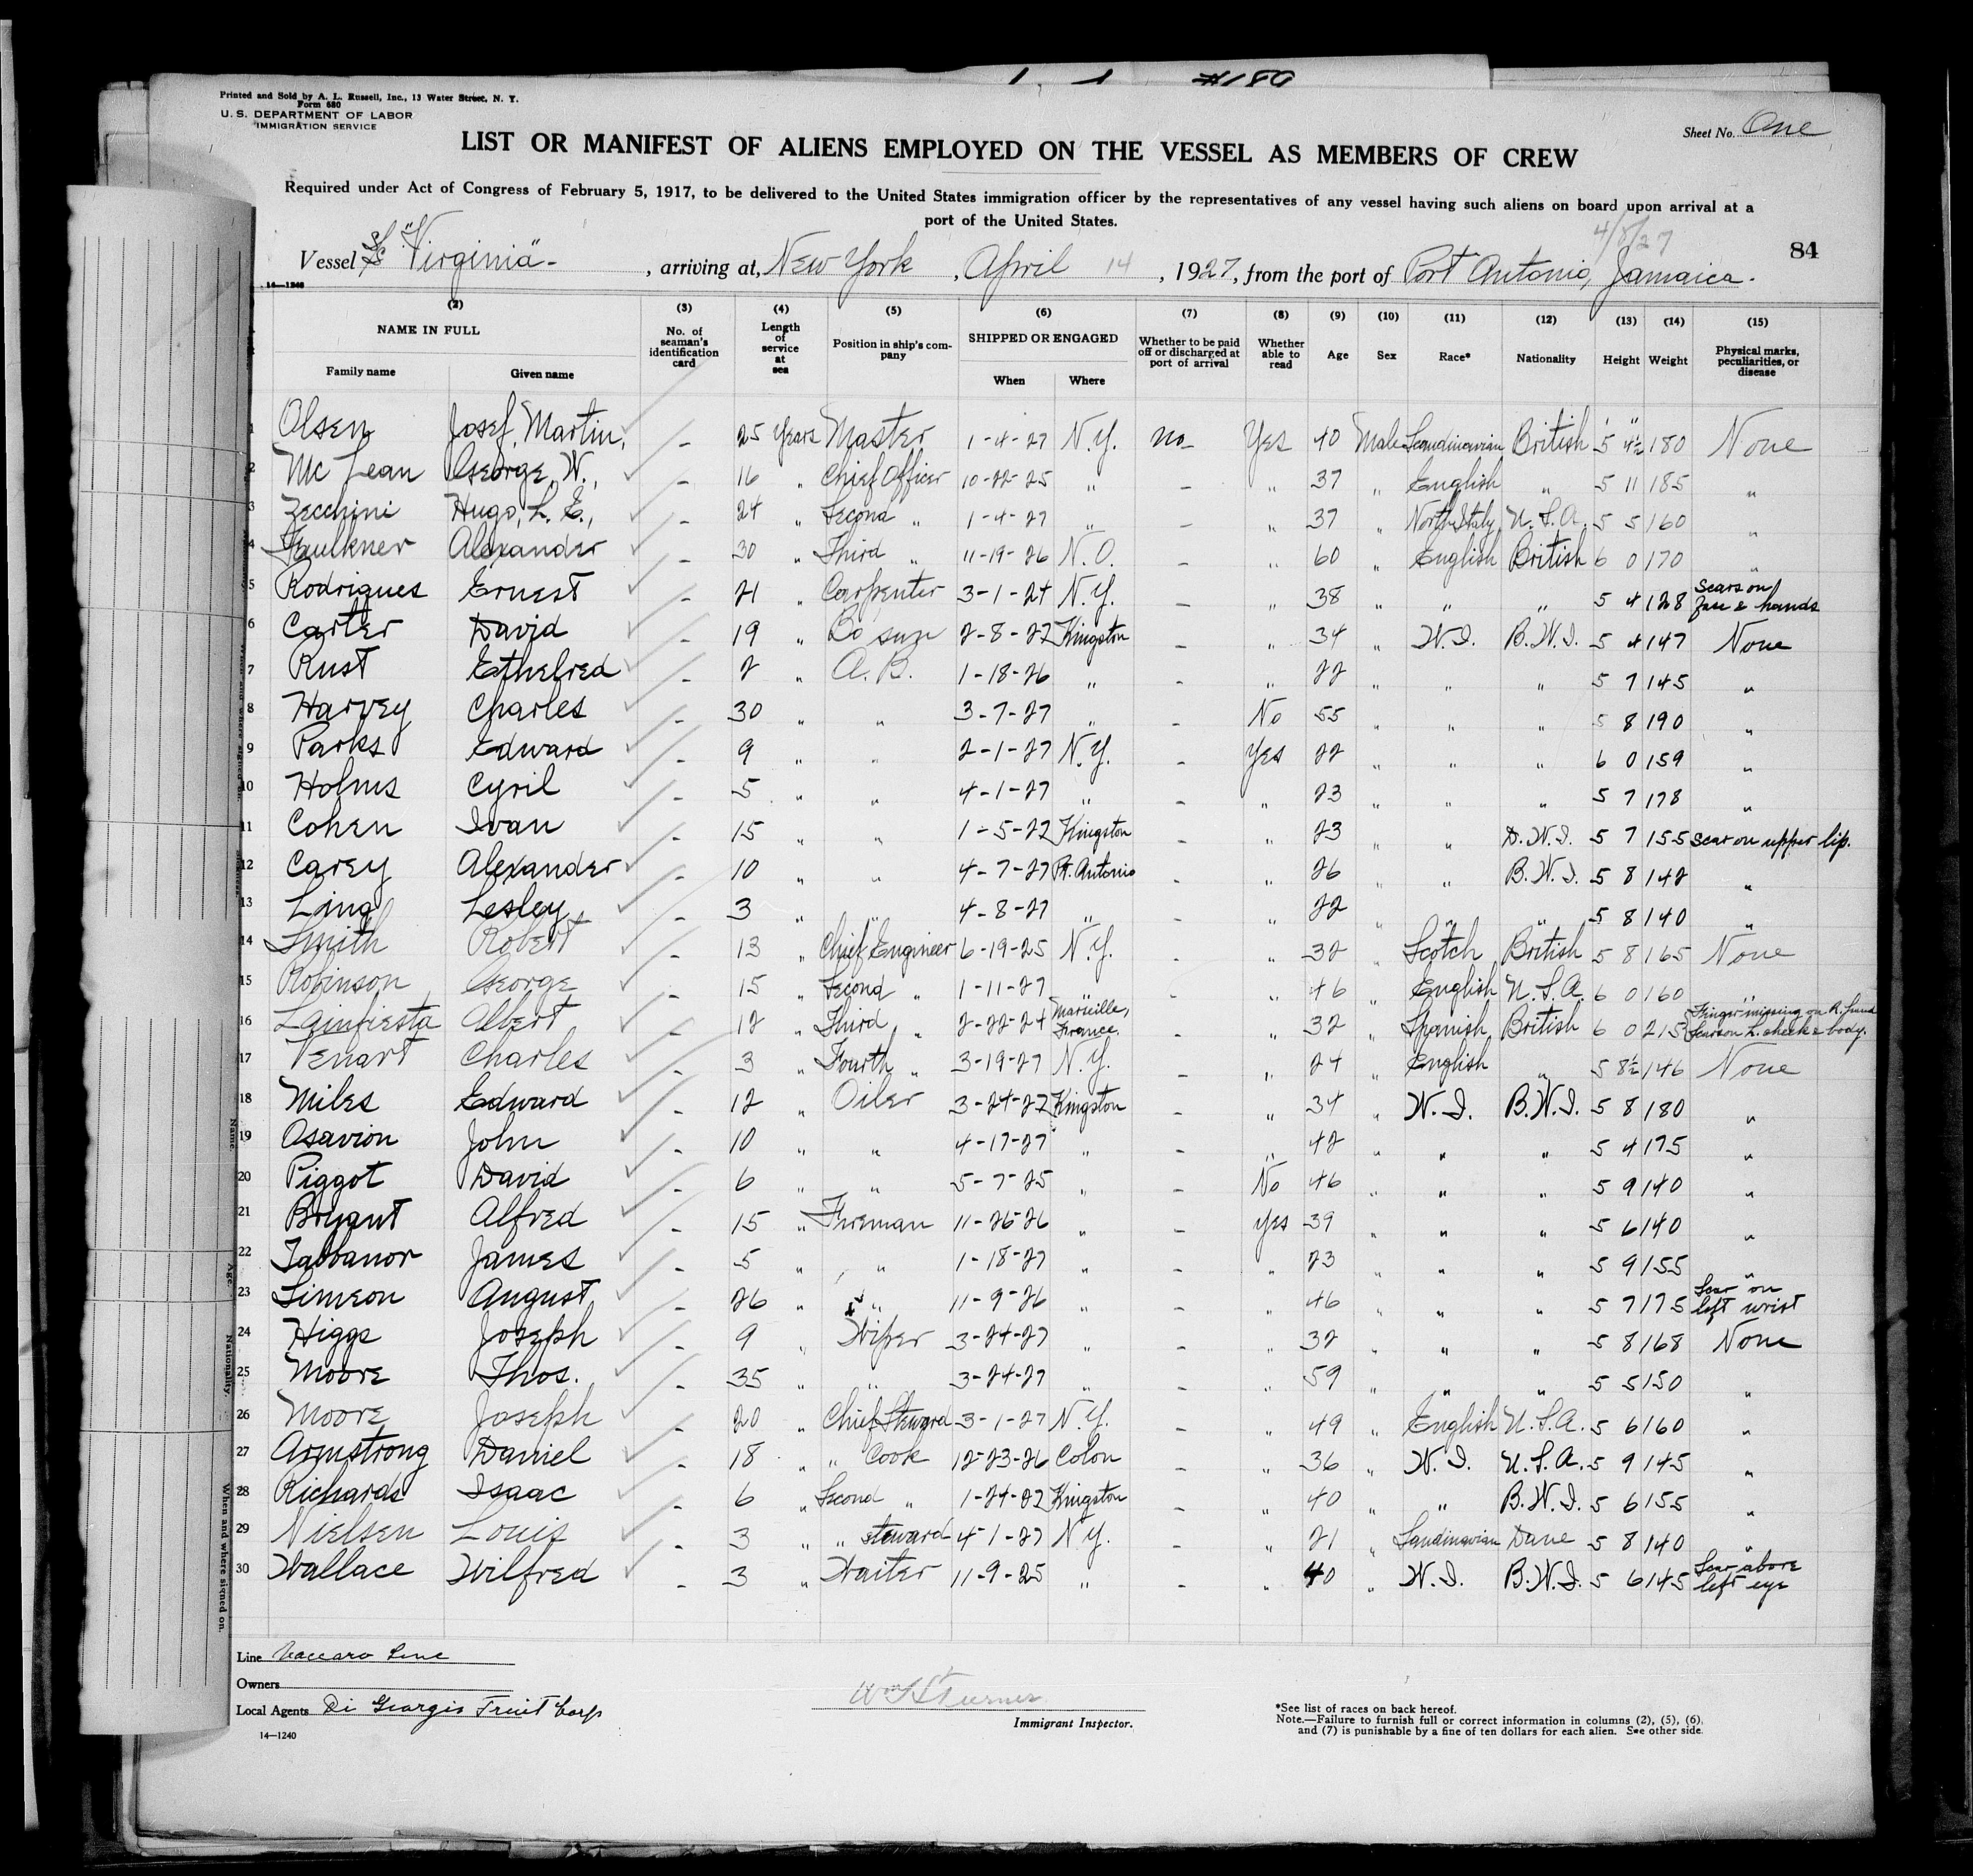 #189
Printed and Sold by A. L. Russell, Inc., 13 Water Street, N. Y.
Form 680
U. S. DEPARTMENT OF LABOR
IMMIGRATION SERVICE
Sheet No. One
LIST OR MANIFEST OF ALIENS EMPLOYED ON THE VESSEL AS MEMBERS OF CREW
Required under Act of Congress of February 5, 1917, to be delivered to the United States immigration officer by the representatives of any vessel having such aliens on board upon arrival at a
port of the United States.
4/8/27
84
Vessel "Virginia"- , arriving at, New York , April 14 , 1927, from the port of Port Antonio, Jamaica.
14—1240
(2) (3) (4) (5) (6) (7) (8) (9) (10) (11) (12) (13) (14) (15)
NAME IN FULL No. of seaman's identification card Length of service at sea Position in ship's company SHIPPED OR ENGAGED Whether to be paid off or discharged at port of arrival Whether able to read Age Sex Race* Nationality Height Weight Physical marks, peculiarities, or disease
Family name Given name When Where
1 Olsen Josef, Martin, - 25 Years Master 1-4-27 N.Y. no Yes 40 Male Scandinavian British 5' 4½" 180 None
2 Mc Lean George, W., - 16 " Chief Officer 10-22-25 " - " 37 " English " 5 11 185 "
3 Zecchini Hugo, L. E., - 24 " Second " 1-4-27 " - " 37 " North Italy U.S.A. 5 5 160 "
4 Faulkner Alexander - 30 " Third " 11-19-26 N.O. - " 60 " English British 6 0 170 "
5 Rodrigues Ernest - 21 " Carpenter 3-1-24 N.Y. - " 38 " " " 5 4 128 Scars on face & hands
6 Carter David - 19 " Bo sun 2-8-27 Kingston - " 34 " W.I. B.W.I. 5 4 147 None
7 Rust Ethelred - 2 " A.B. 1-18-26 " - " 22 " " " 5 7 145 "
8 Harvey Charles - 30 " " 3-7-27 " - No 55 " " " 5 8 190 "
9 Parks Edward - 9 " " 2-1-27 N.Y. - Yes 22 " " " 6 0 159 "
10 Holms Cyril - 5 " " 4-1-27 " - " 23 " " " 5 7 178 "
11 Cohen Ivan - 15 " " 1-5-27 Kingston - " 23 " " D.W.I. 5 7 155 Scar on upper lip.
12 Carey Alexander - 10 " " 4-7-27 Pt. Antonio - " 26 " " B.W.I. 5 8 142 "
13 Ling Lesley - 3 " " 4-8-27 " - " 22 " " " 5 8 140 "
14 Smith Robert - 13 " Chief Engineer 6-19-25 N.Y. - " 32 " Scotch British 5 8 165 None
15 Robinson George - 15 " Second " 1-11-27 " - " 46 " English U.S.A. 6 0 160 "
16 Lainfiesta Albert - 12 " Third " 2-22-24 Marseille, France. - " 32 " Spanish British 6 0 215 Finger missing on R. hand Scars on L. cheek & body.
17 Tenart Charles - 3 " Fourth " 3-19-27 N.Y. - " 24 " English " 5 8½ 146 None
18 Miles Edward - 12 " Oiler 3-24-27 Kingston - " 34 " W.I. B.W.I. 5 8 180 "
19 Osavion John - 10 " " 4-17-27 " - " 42 " " " 5 4 175 "
20 Piggot David - 6 " " 5-7-25 " - No 46 " " " 5 9 140 "
21 Bryant Alfred - 15 " Fireman 11-26-26 " - Yes 39 " " " 5 6 140 "
22 Tabbanor James - 5 " " 1-18-27 " - " 23 " " " 5 9 155 "
23 Simeon August - 26 " " 11-9-26 " - " 46 " " " 5 7 175 Scar on left wrist
24 Higgs Joseph - 9 " Wiper 3-24-27 " - " 32 " " " 5 8 168 None
25 Moore Thos. - 35 " " 3-24-27 " - " 59 " " " 5 5 150 "
26 Moore Joseph - 20 " Chief Steward 3-1-27 N.Y. - " 49 " English U.S.A. 5 6 160 "
27 Armstrong Daniel - 18 " " Cook 12-23-26 Colon - " 36 " W.I. U.S.A. 5 9 145 "
28 Richards Isaac - 6 " Second " 1-24-27 Kingston - " 40 " " B.W.I. 5 6 155 "
29 Nielsen Louis - 3 " " steward 4-1-27 N.Y. - " 21 " Scandinavian Dane 5 8 140 "
30 Wallace Wilfred - 3 " Waiter 11-9-25 " - " 40 " W.I. B.W.I. 5 6 145 Scar above left eye
Line Vaccaro Line
Owners
Local Agents Di Georgio Fruit Corp
14—1240
Immigrant Inspector.
*See list of races on back hereof.
Note.—Failure to furnish full or correct information in columns (2), (5), (6), and (7) is punishable by a fine of ten dollars for each alien. See other side.
Name.
Age.
Nationality.
When and where signed on.